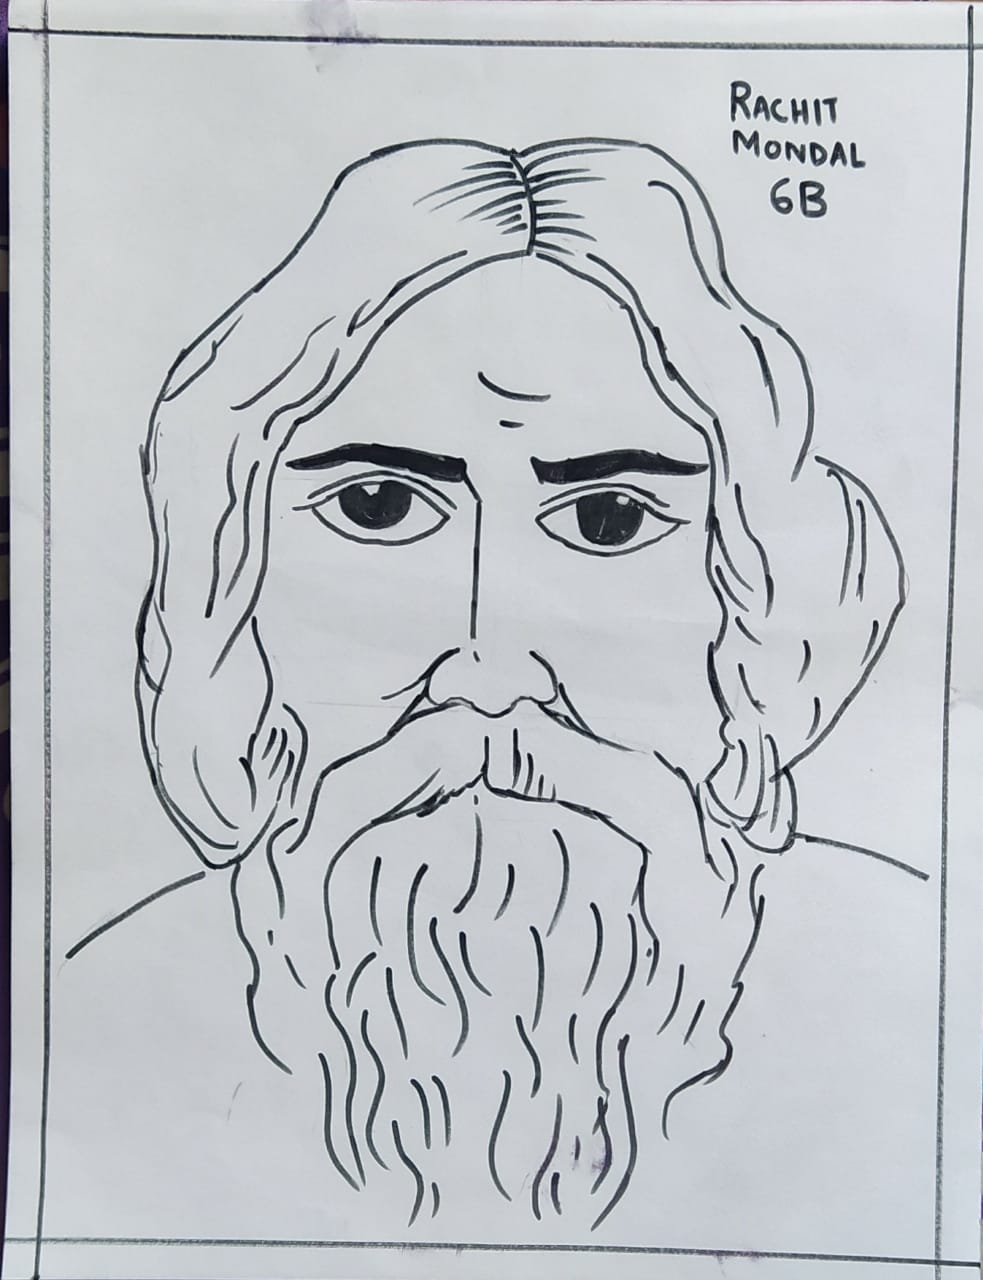 RACHIT
MONDAL
6B